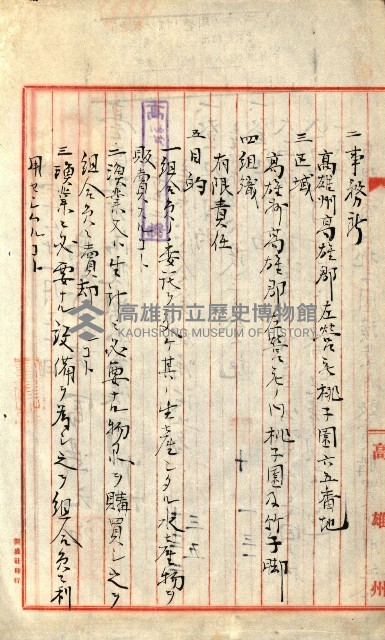 二事務所
高雄州高雄郡左營庄桃子園六五番地
三區域
高雄州高雄郡左營庄ノ内桃子園及竹子脚
四組織
有限責任
五目的
一組合員ノ委託ヲ受ケ其ノ生產シタル水產物ヲ
販賣スルコト
二漁業又ハ生計ニ必要ナル物品ヲ購買シ之ヲ
組合員ニ賣却スルコト
三漁業ニ必要ナル設備ヲ為シ之ヲ組合員ヲシテ利
用セシムルコト
高雄州
高雄市立歷史博物館
KAOHSIUNG MUSEUM OF HISTORY